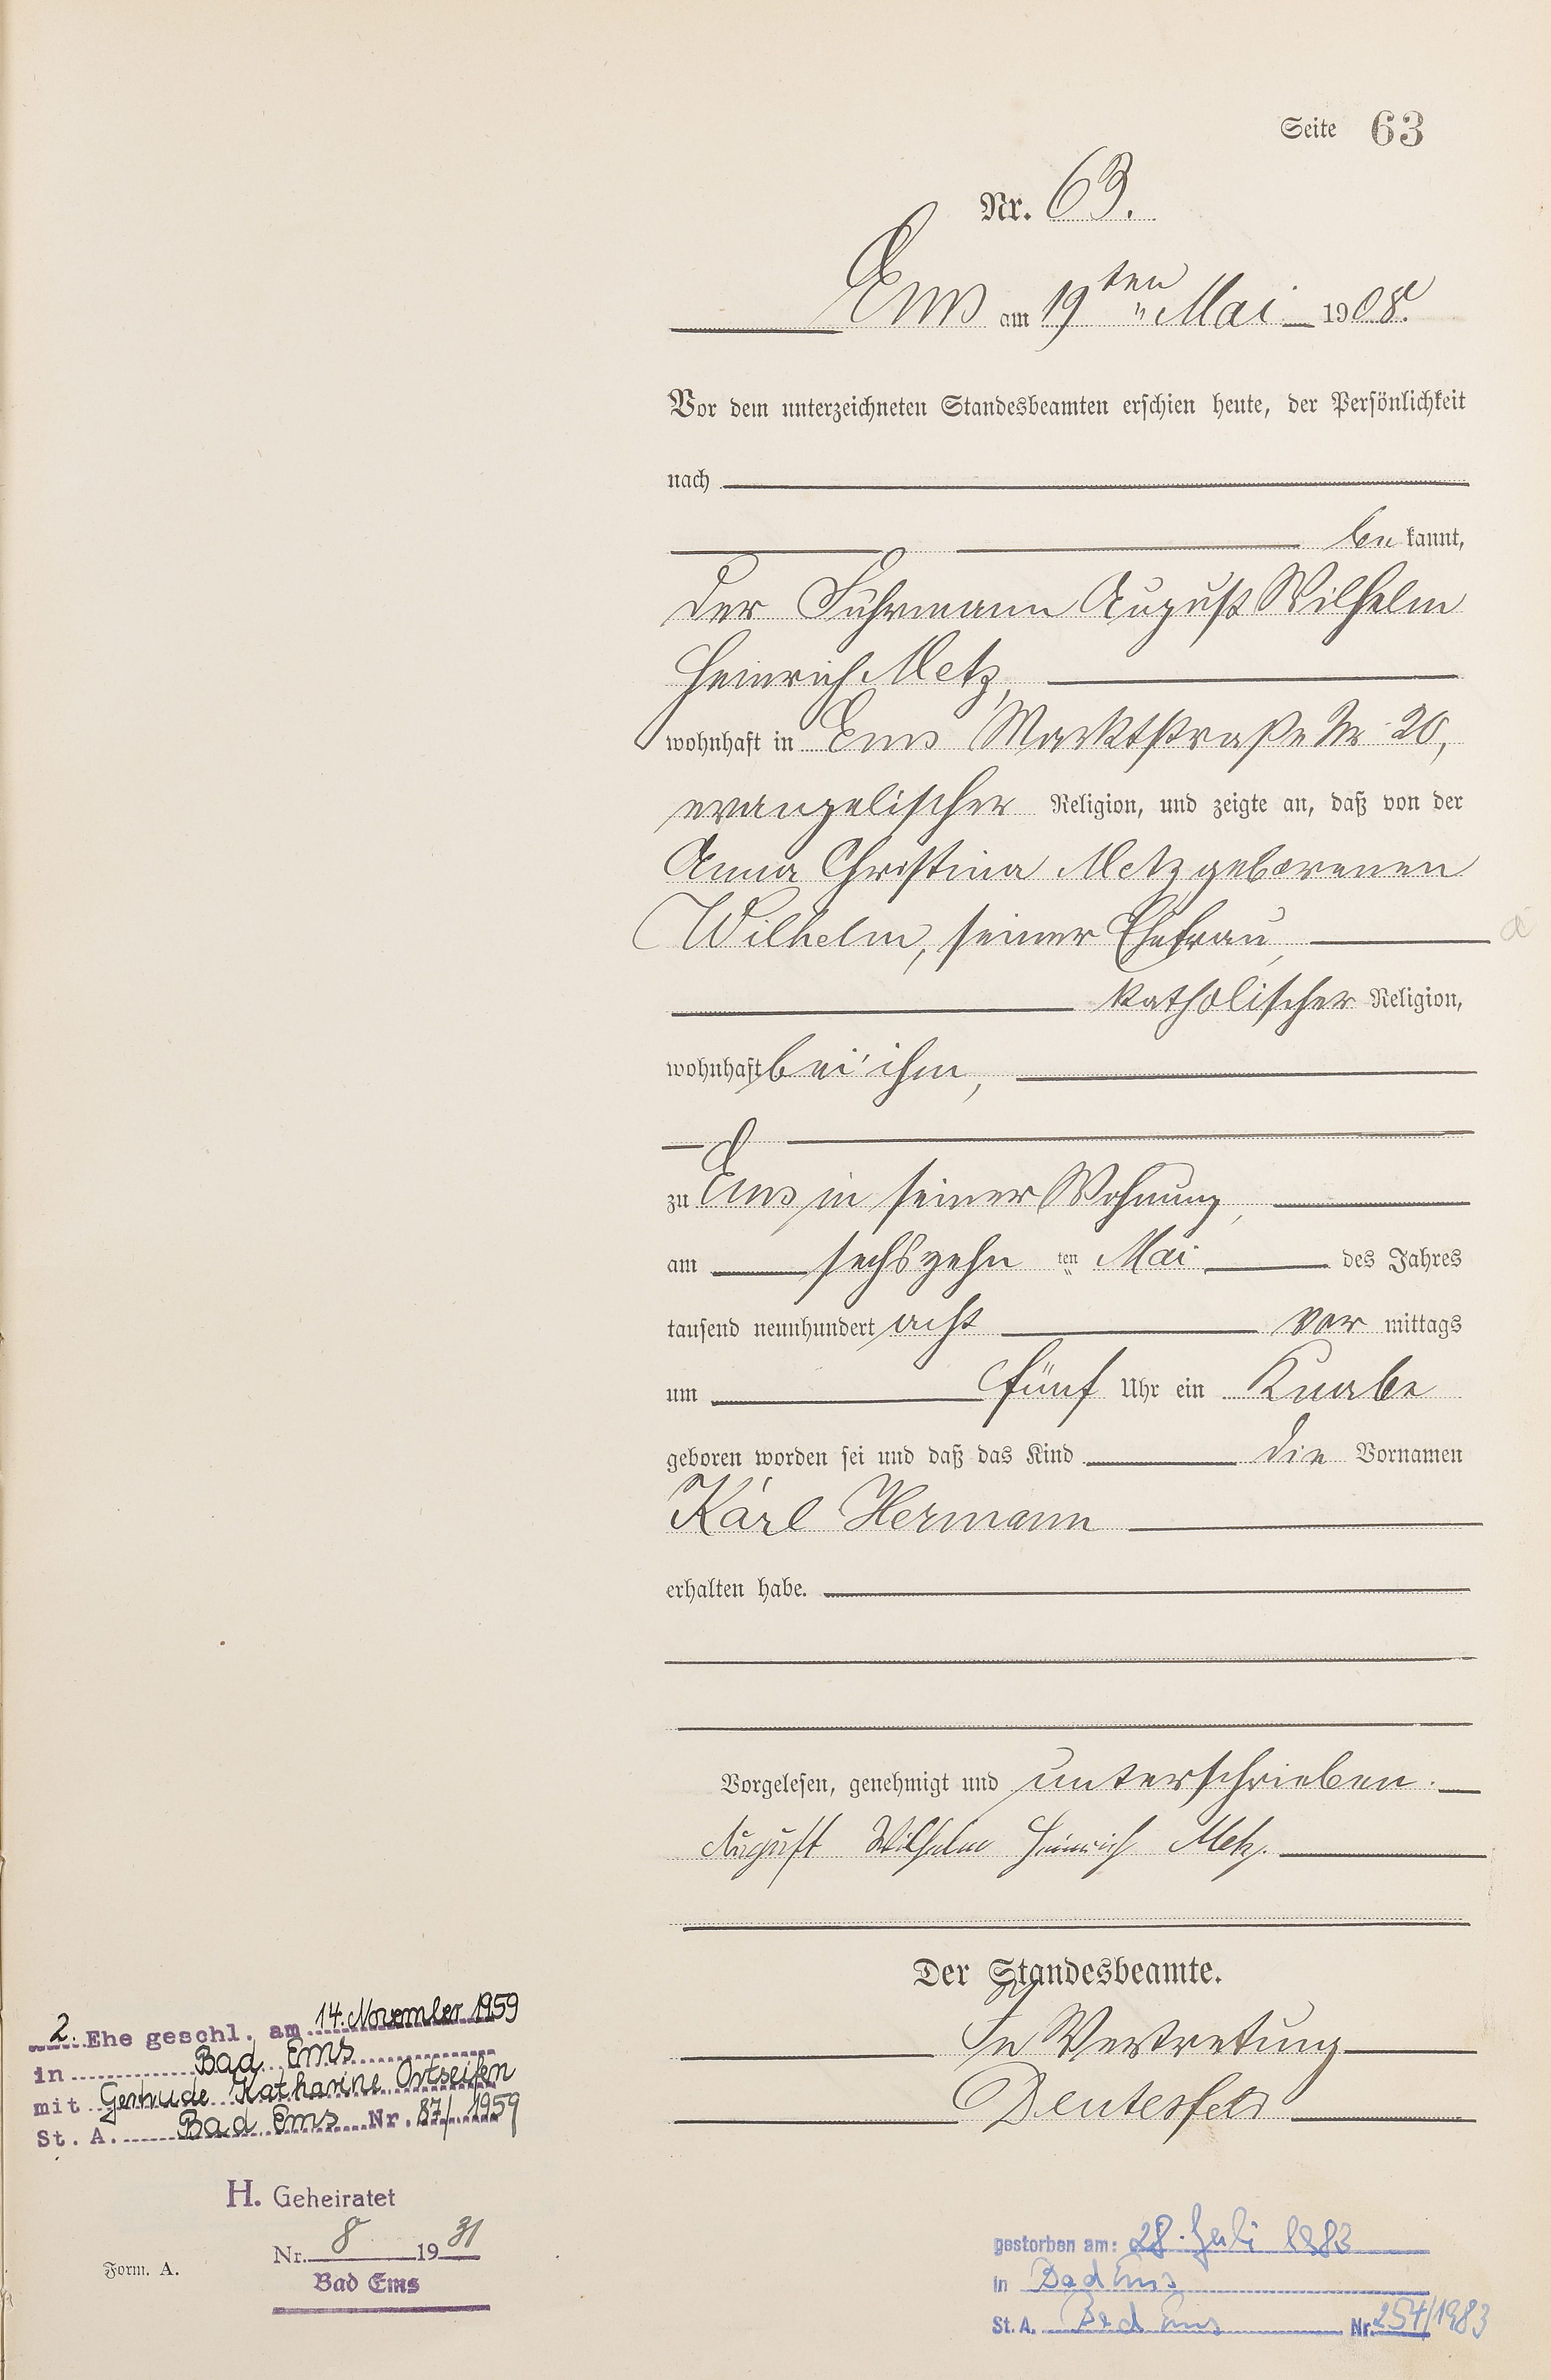 Seite 63
Nr. 63.
Ems am 19ten " Mai 1908.
Vor dem unterzeichneten Standesbeamten erschien heute, der Persönlichkeit
nach
be kannt,
der Fuhrmann August Wilhelm
Heinrich Metz,
wohnhaft in Ems Marktstraße Nr 20,
evangelischer Religion, und zeigte an, daß von der
Anna Christina Metz geborenen
Wilhelm, seiner Ehefrau,
katholischer Religion,
wohnhaft bei ihm,
zu Ems in seiner Wohnung,
am sechszehn ten " Mai des Jahres
tausend neunhundert acht vor mittags
um fünf Uhr ein Knabe
geboren worden sei und daß das Kind die Vornamen
Karl Hermann
erhalten habe.
Vorgelesen, genehmigt und unterschrieben.
August Wilhelm Heinrich Metz.
Der Standesbeamte.
In Vertretung
Deutesfeld
2. Ehe geschl. am 14. November 1959
in Bad Ems
mit Gertrude Katharine Ortseifen
St. A. Bad Ems Nr. 87/1959
H. Geheiratet
Nr. 8 1931
Bad Ems
Form. A.
gestorben am: 28. Juli 1983
in Bad Ems
St. A. Bad Ems Nr. 254/1983